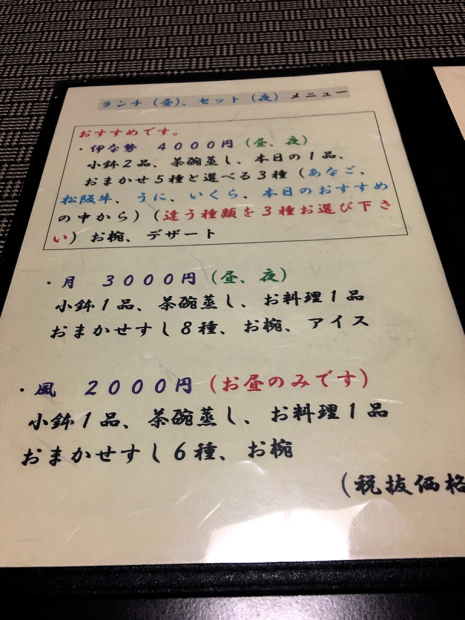 ランチ（昼）、セット（夜）メニュー
おすすめです。
・伊な勢　４０００円（昼、夜）
小鉢２品、茶碗蒸し、本日の１品、
おまかせ５種と選べる３種（あなご、
松阪牛、うに、いくら、本日のおすすめ
の中から）（違う種類を３種お選び下さ
い）お椀、デザート
・月　３０００円（昼、夜）
小鉢１品、茶碗蒸し、お料理１品
おまかせすし８種、お椀、アイス
・風　２０００円（お昼のみです）
小鉢１品、茶碗蒸し、お料理１品
おまかせすし６種、お椀
（税抜価格